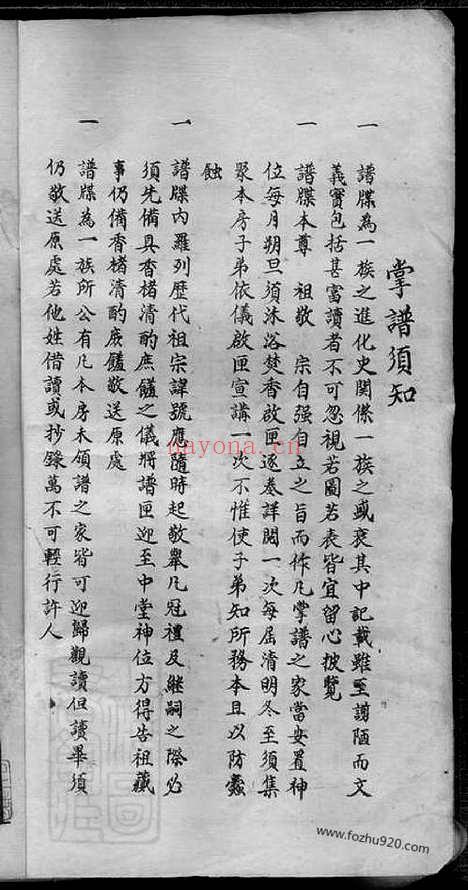 掌譜須知
一 譜牒為一族之進化史關係一族之盛衰其中記載雖至謭陋而文
義實包括甚富讀者不可忽視若圖若表皆宜留心披覽
一 譜牒本尊 祖敬 宗自强自立之旨而作凡掌譜之家當安置神
位每月朔旦須沐浴焚香啟匣逐卷詳閱一次每屆清明冬至須集
聚本房子弟依儀啟匣宣講一次不惟使子弟知所務本且以防蠹
蝕
一 譜牒內羅列歷代祖宗諱號應隨時起敬舉凡冠禮及繼嗣之際必
須先備具香楮清酌庶饈之儀將譜匣迎至中堂神位方得告祖藏
事仍備香楮清酌庶饈敬送原處
一 譜牒為一族所公有凡本房未領譜之家皆可迎歸觀讀但讀畢須
仍敬送原處若他姓借讀或抄錄萬不可輕行許人
nayona.cn
www.fozhu920.com